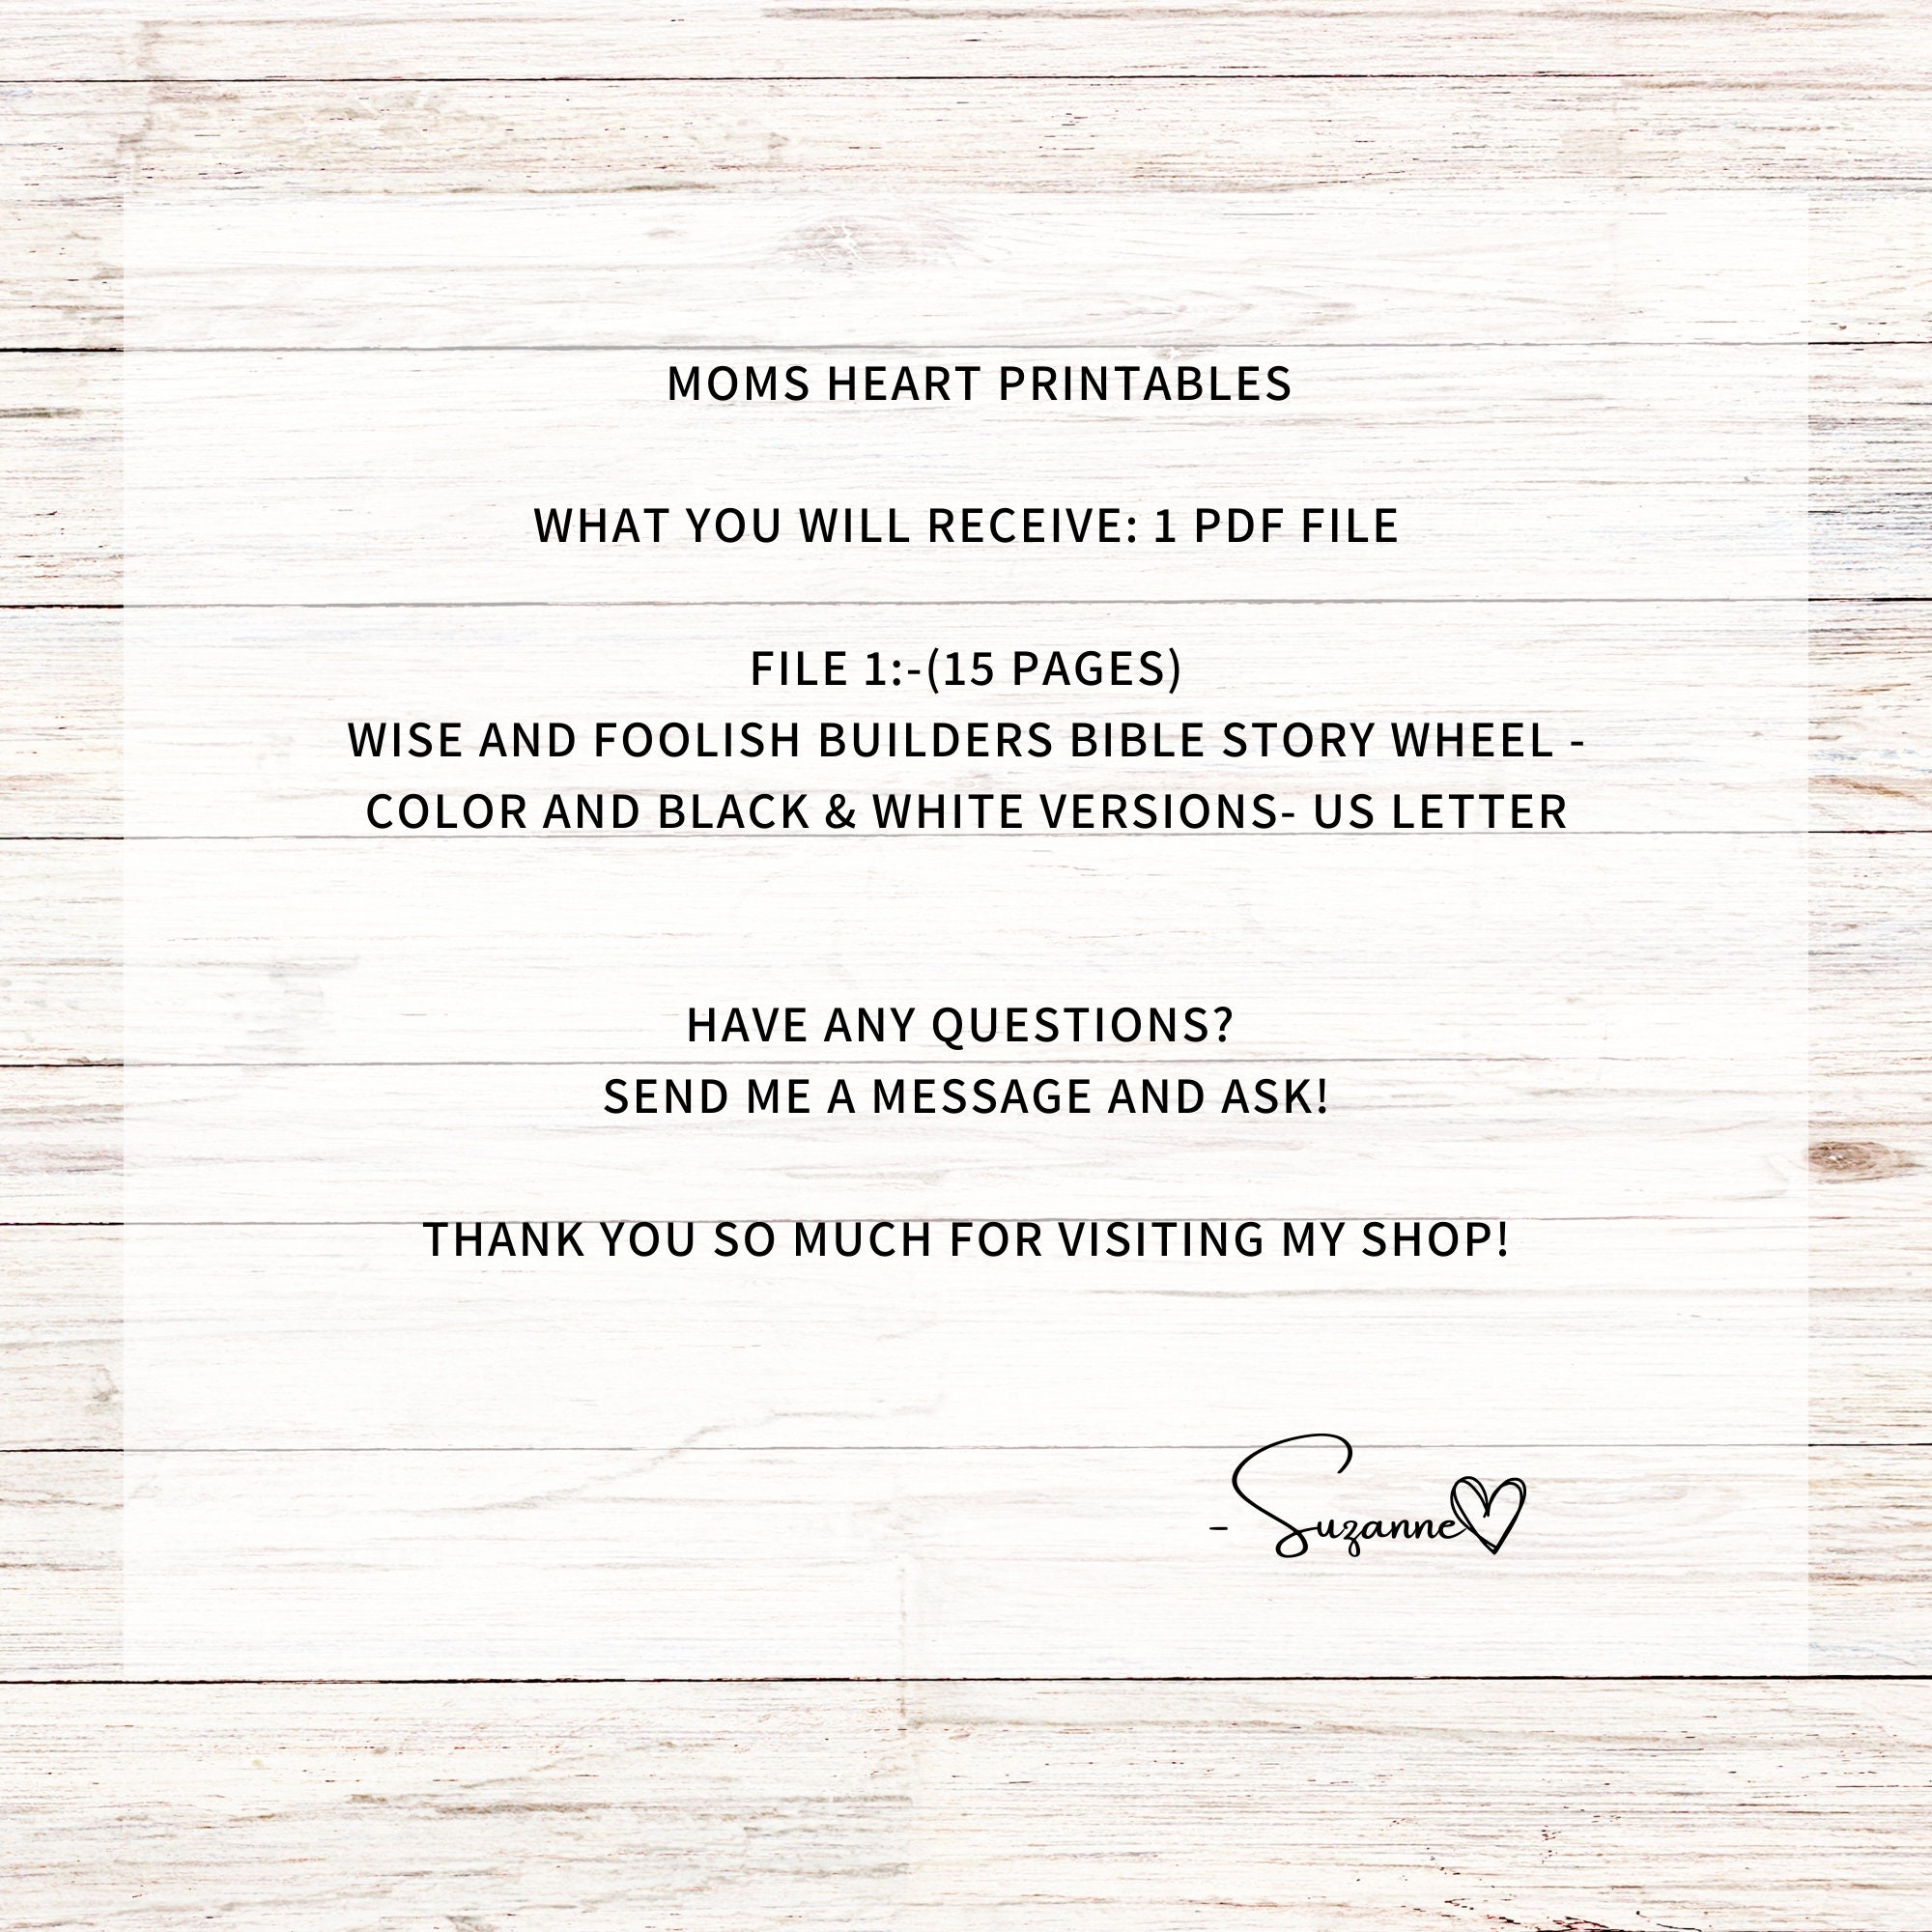 MOMS HEART PRINTABLES
WHAT YOU WILL RECEIVE: 1 PDF FILE
FILE 1:-(15 PAGES)
WISE AND FOOLISH BUILDERS BIBLE STORY WHEEL -
COLOR AND BLACK & WHITE VERSIONS- US LETTER
HAVE ANY QUESTIONS?
SEND ME A MESSAGE AND ASK!
THANK YOU SO MUCH FOR VISITING MY SHOP!
- Suzanne